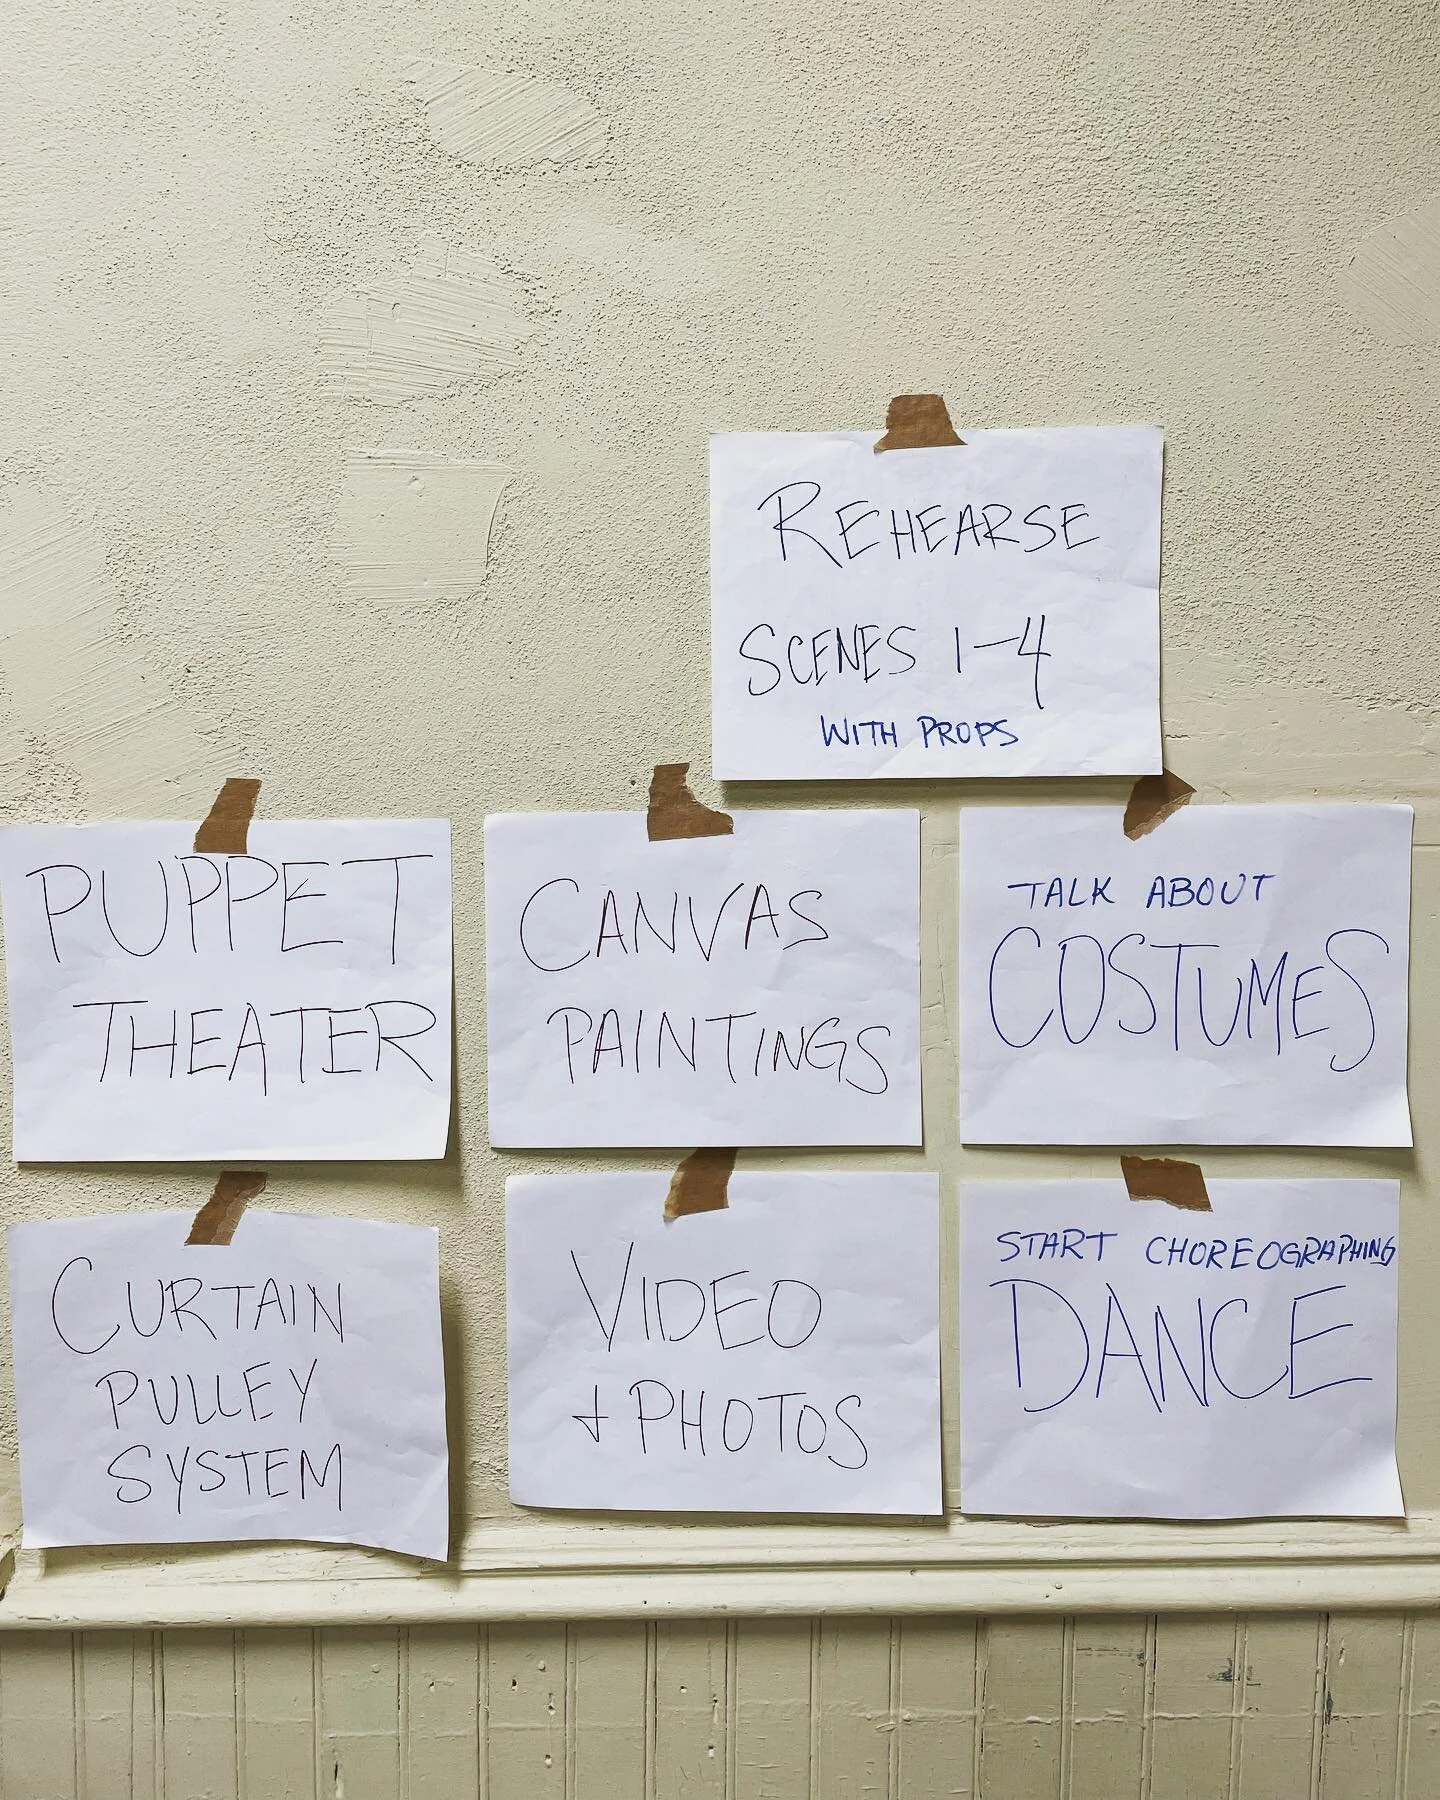 REHEARSE
SCENES 1-4
WITH PROPS
PUPPET
THEATER
CANVAS
PAINTINGS
TALK ABOUT
COSTUMES
CURTAIN
PULLEY
SYSTEM
VIDEO
+ PHOTOS
START CHOREOGRAPHING
DANCE